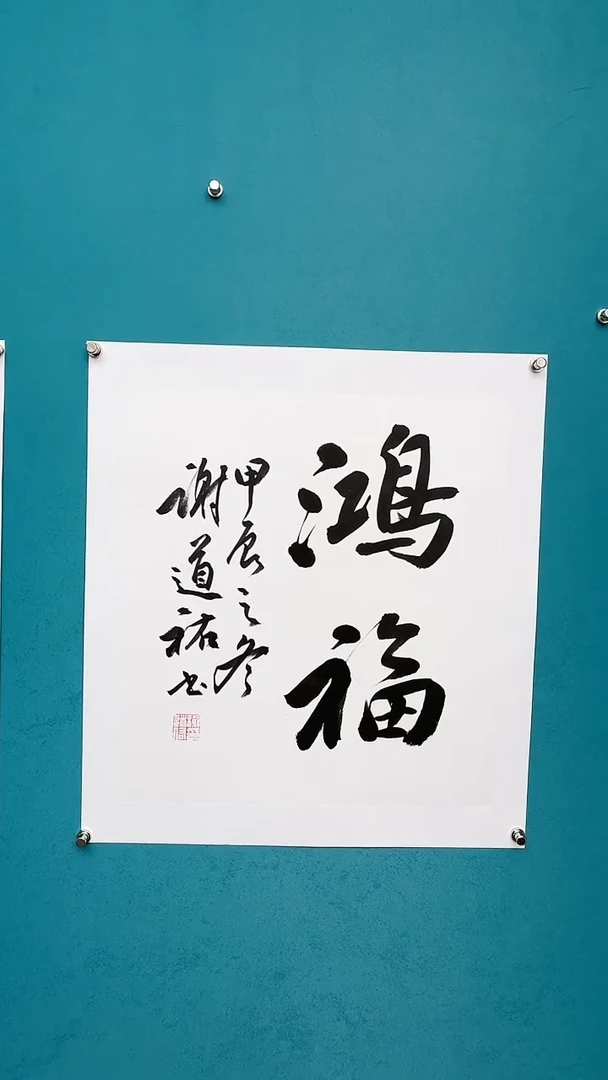 鸿福
甲辰之冬
谢道祐书